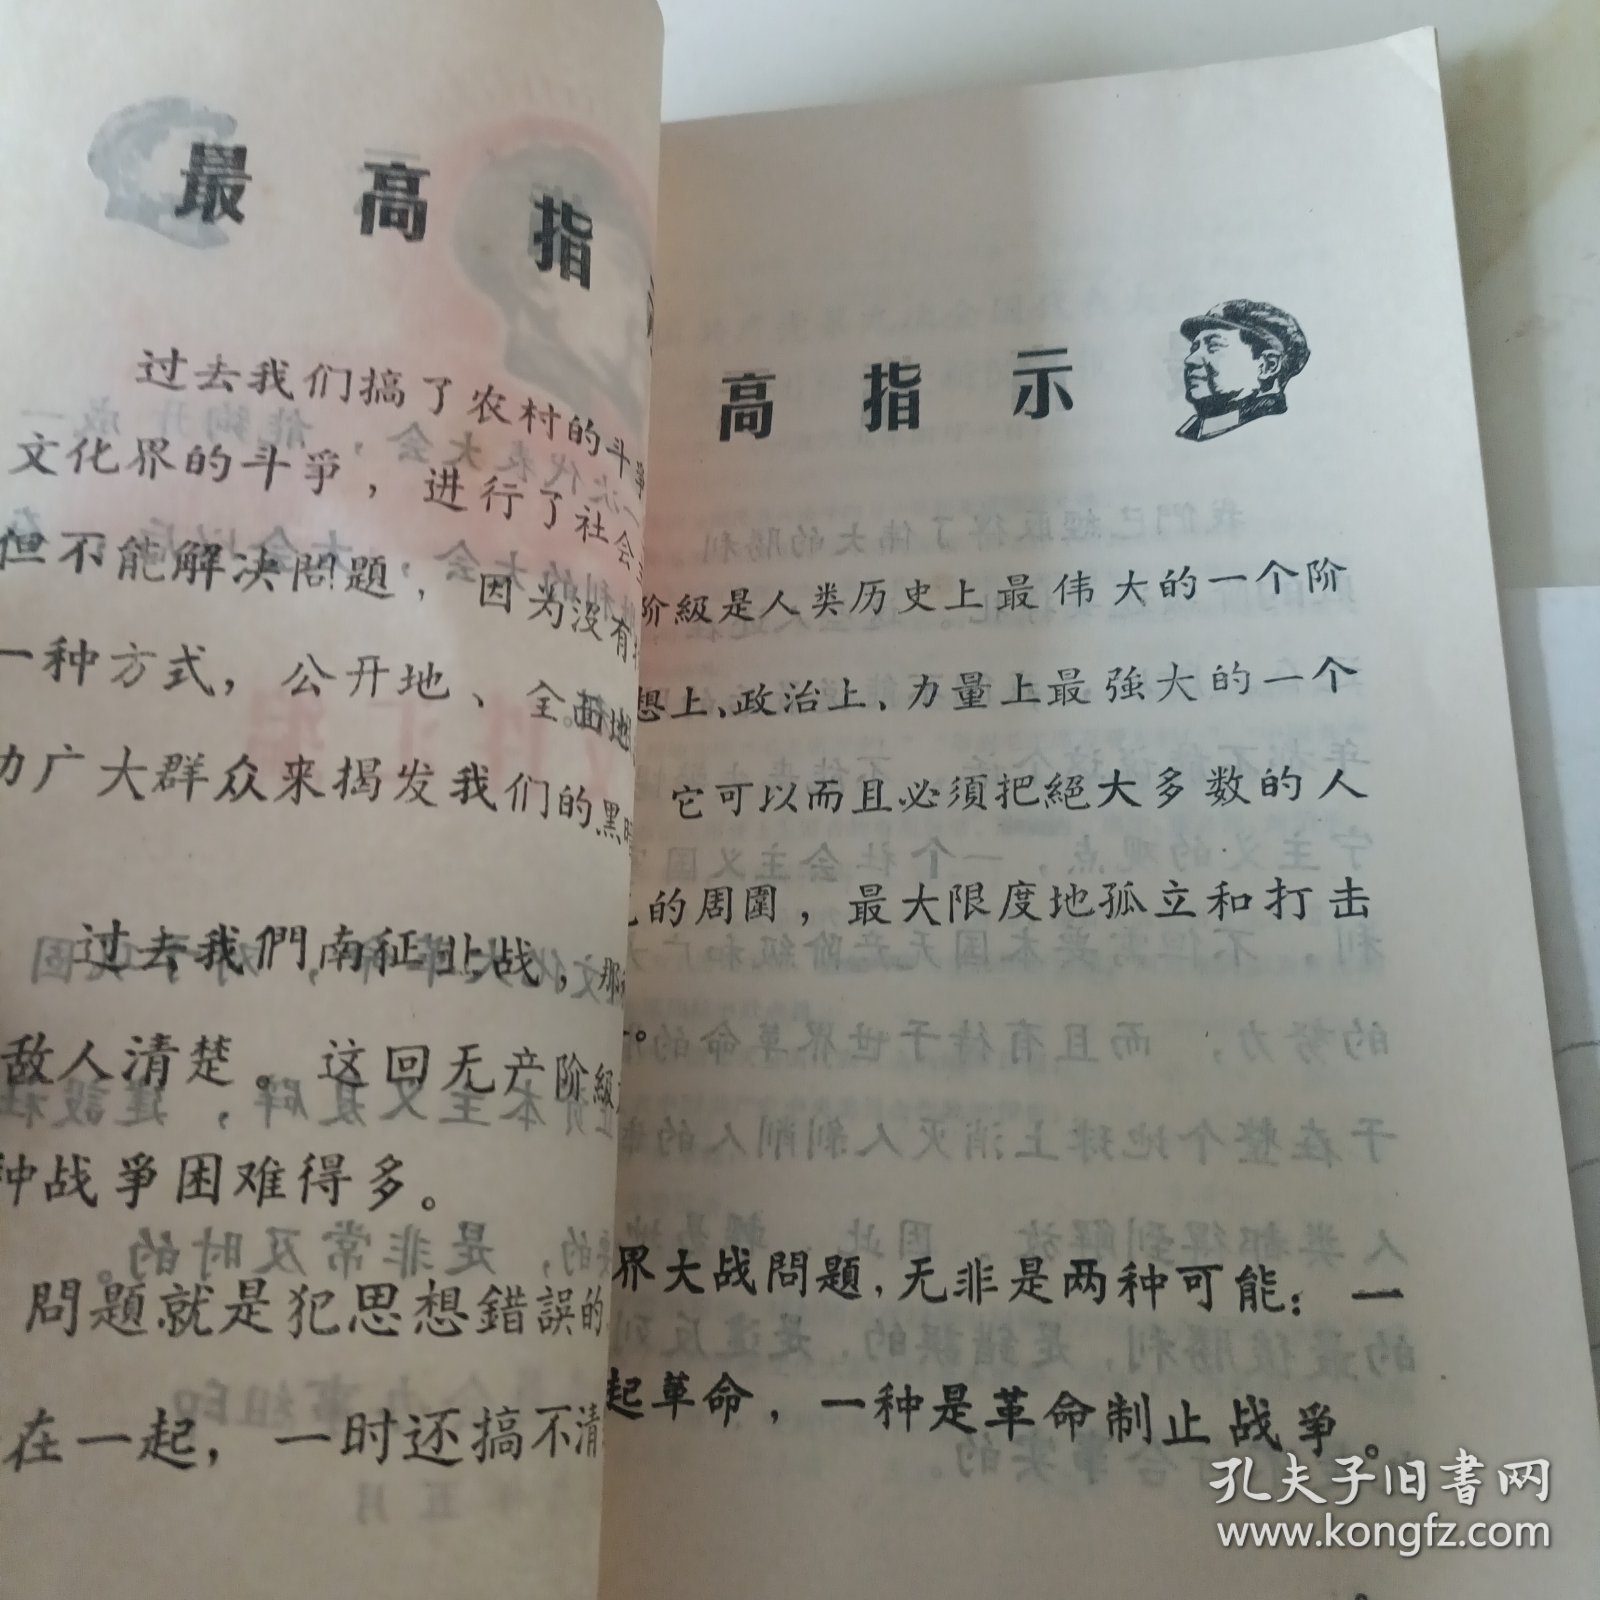 最高指
过去我们搞了农村的斗
文化界的斗爭，进行了社会
但不能解决問題，因为沒有
一种方式，公开地、全面地
广大群众来揭发我们的黑
过去我們南征北战，那
敌人清楚。这回无产阶級
种战爭困难得多。
問題就是犯思想錯誤的
在一起，一时还搞不清
高指示
阶級是人类历史上最伟大的一个阶
想上、政治上、力量上最強大的一个
它可以而且必須把絕大多数的人
的周圍，最大限度地孤立和打击
界大战問題，无非是两种可能：一
起革命，一种是革命制止战爭。
孔夫子旧書网
www.kongfz.com